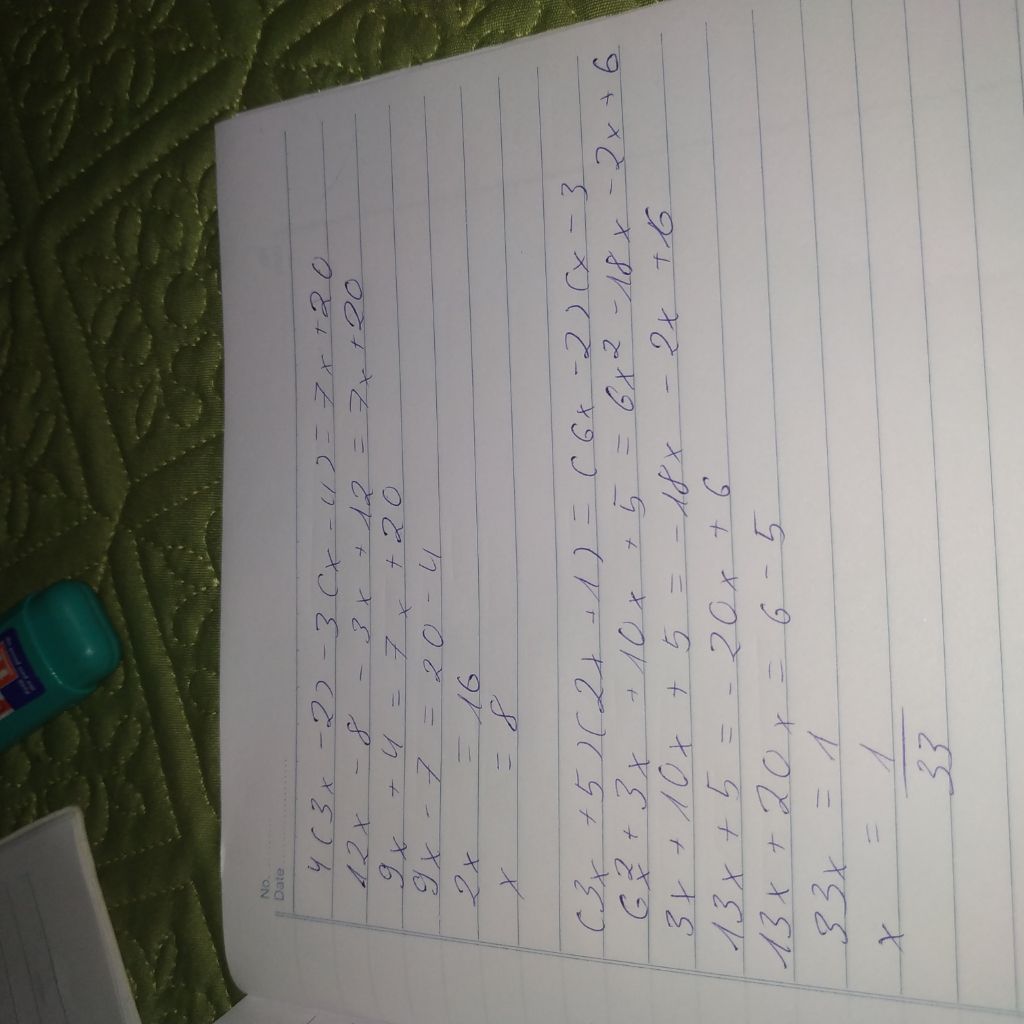 No.
Date
4(3x-2)-3(x-4)=7x+20
12x-8-3x+12=7x+20
9x+4=7x+20
9x-7=20-4
2x=16
x=8
(3x+5)(2x+1)=(6x-2)(x-3
6x²+3x+10x+5=6x²-18x-2x+6
3x+10x+5=-18x-2x+6
13x+5=-20x+6
13x+20x=6-5
33x=1
x=1
33